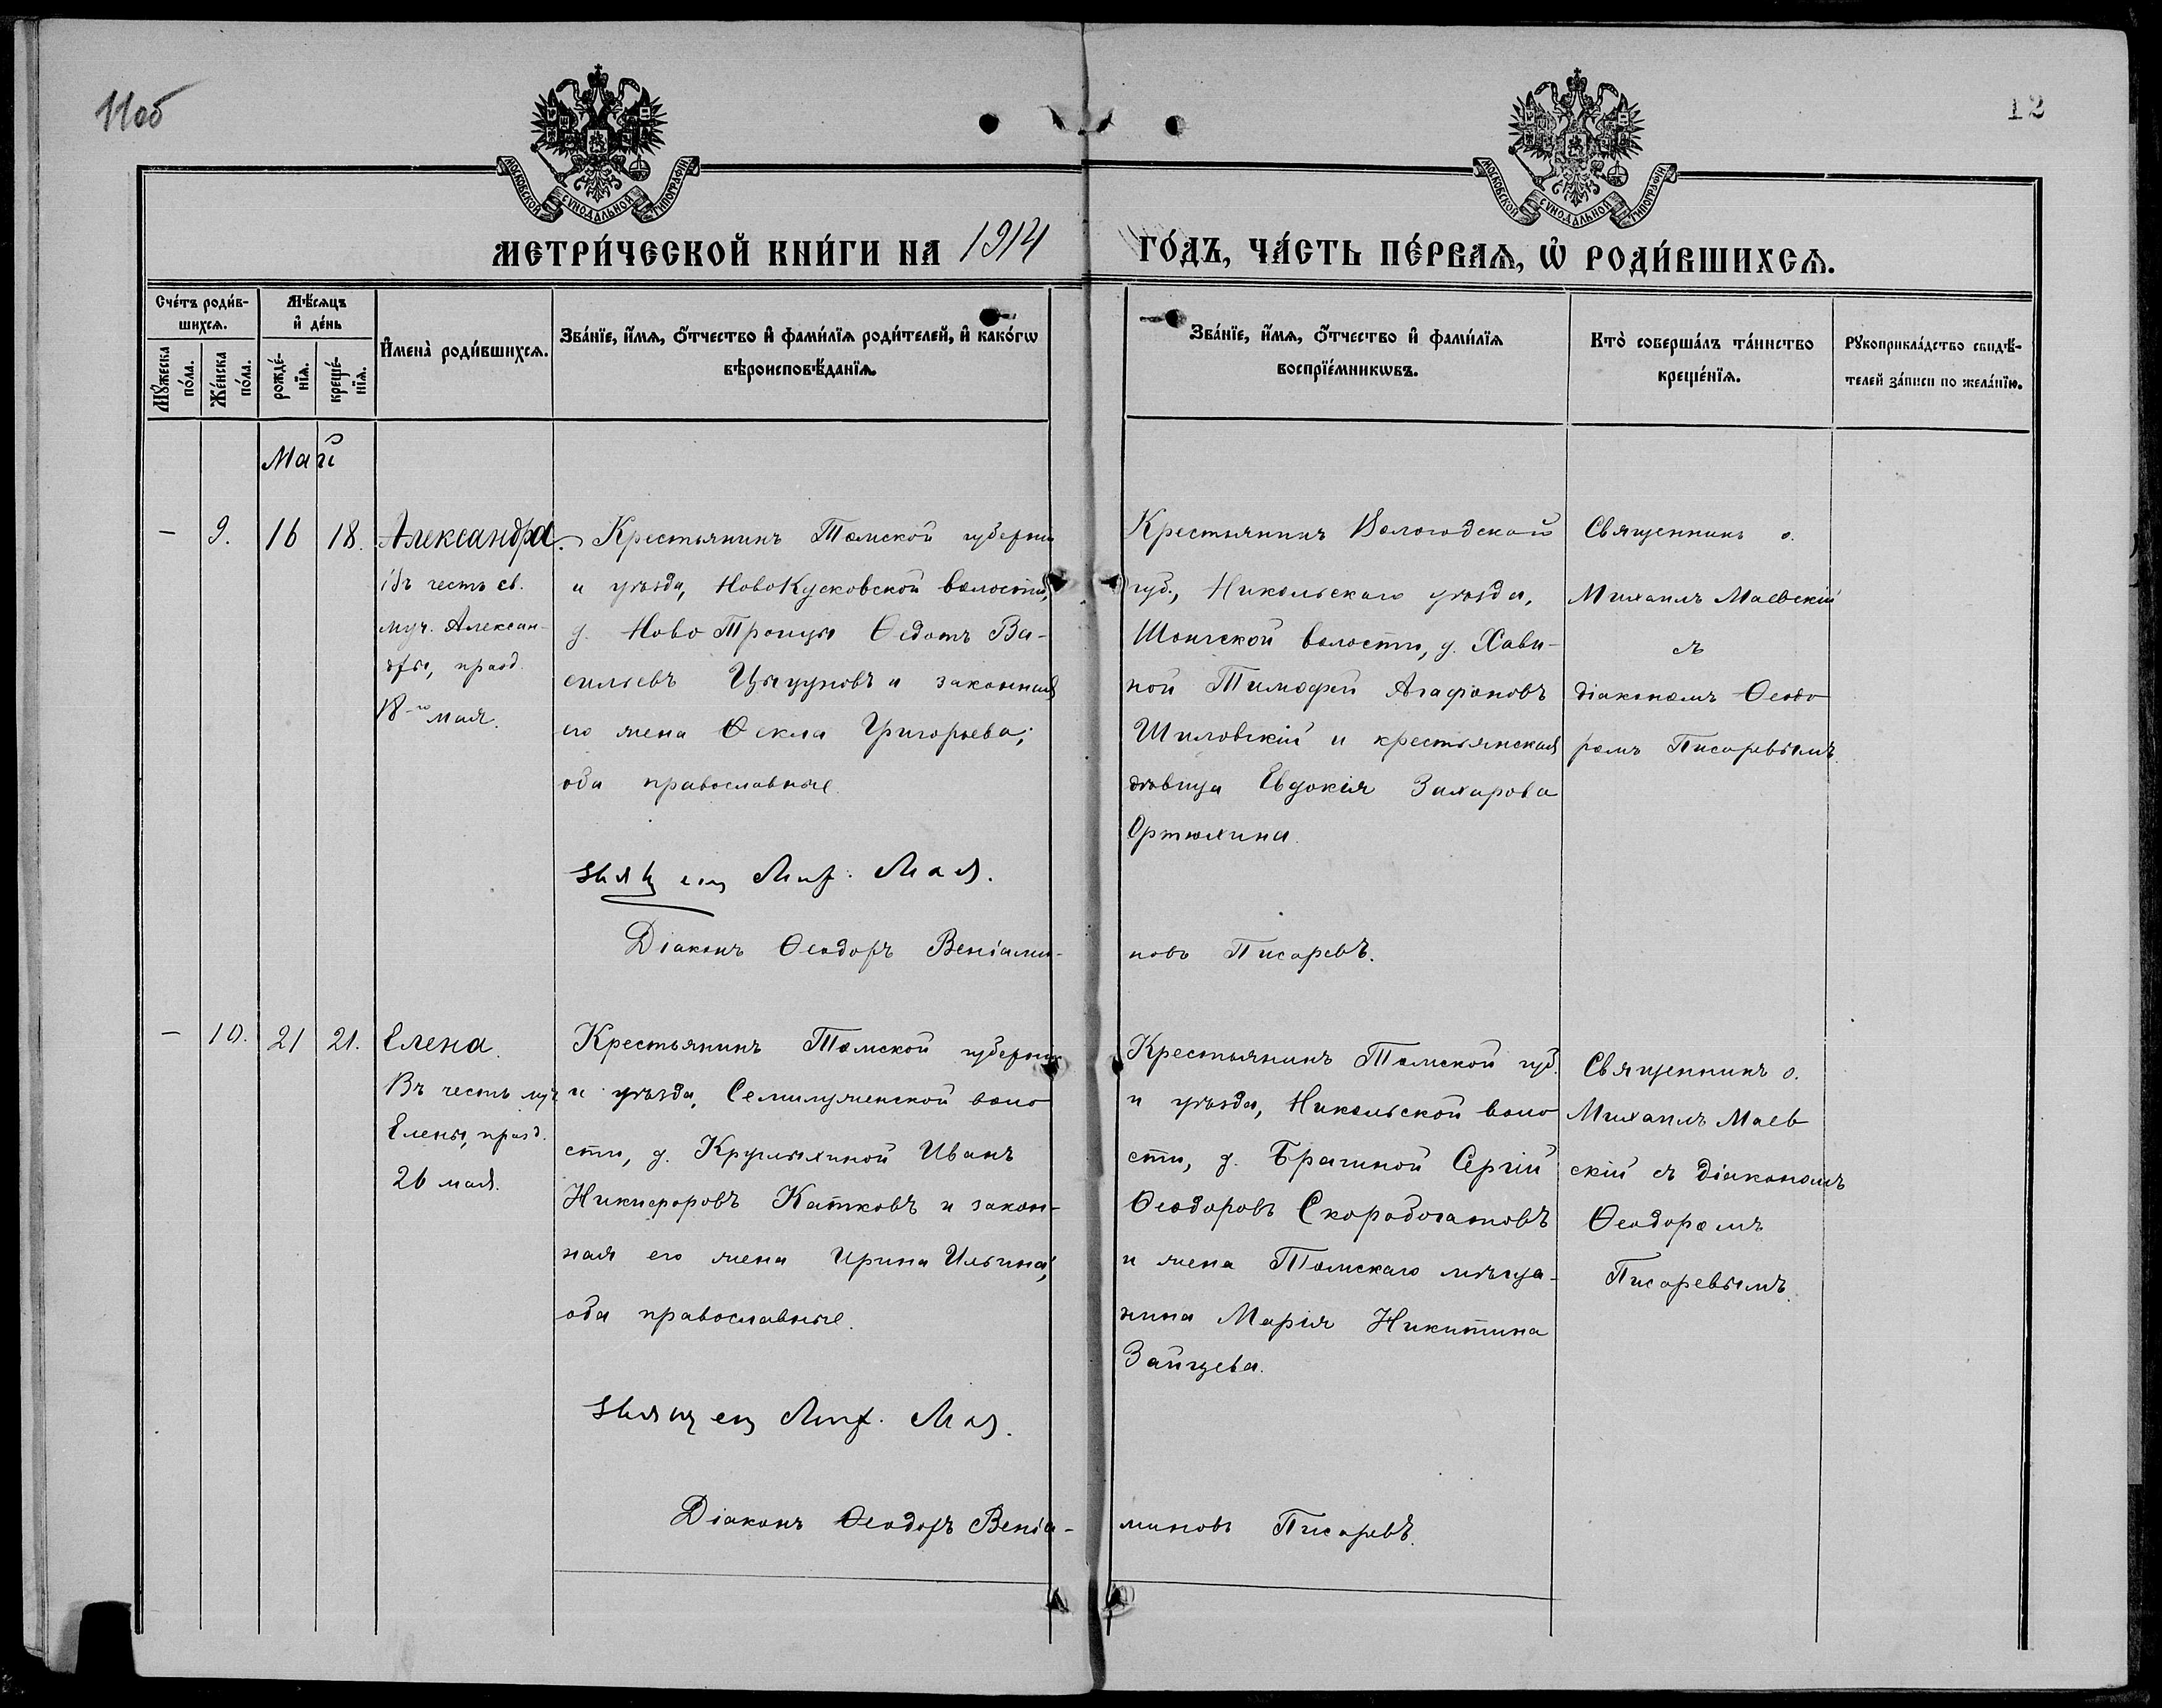 11об
12
МОСКОВСКОЙ СѴНОДАЛЬНОЙ ТИПОГРАФІИ
МОСКОВСКОЙ СѴНОДАЛЬНОЙ ТИПОГРАФІИ
МЕТРИ́ЧЕСКОЙ КНИ́ГИ НА 1914
ГО́ДЪ, ЧА́СТЬ ПЕ́РВАѦ, Ѽ РОДИ́ВШИХСѦ.
Сче́тъ роди́в-
шихсѧ.
Мꙋ́жеска
по́ла.
Же́нска
по́ла.
Мѣ́сѧцъ
и҆ де́нь
рожде́-
нїѧ.
креще́-
нїѧ.
И҆мена̀ роди́вшихсѧ.
Зва́нїе, и҆́мѧ, ѻ҆́тчество и҆ фами́лїѧ роди́телей, и҆ како́гѡ
вѣроисповѣ́данїѧ.
Зва́нїе, и҆́мѧ, ѻ҆́тчество и҆ фами́лїѧ
воспрїе́мникѡвъ.
Кто̀ соверша́лъ та́инство
креще́нїѧ.
Рꙋкоприкла́дство свидѣ́-
телей за́писи по жела́нїю.
Май
— 9. 16 18.
Александра.
въ честь св.
муч. Алексан-
дры, празд.
18-го мая.
Крестьянинъ Томской губерніи
и уѣзда, НовоКусковской волости,
д. НовоТроицы Ѳедотъ Ва-
сильевъ и законная
его жена Ѳекла Григорьева;
оба православные.
Діаконъ Ѳеодоръ Веніами-
Крестьянинъ Вологодской
губ., Никольскаго уѣзда,
волости, д. Хави-
ной Тимофей Агафоновъ
Шиловскій и крестьянская
дѣвица Евдокія Захарова
Ортюхина.
новъ Писаревъ.
Священникъ о.
Михаилъ Маевскій
съ
діакономъ Ѳеодо
ромъ Писаревымъ.
— 10. 21 21.
Елена.
Въ честь муч.
Елены, празд.
26 мая.
Крестьянинъ Томской губерніи
и уѣзда, Семилуженской воло
сти, д. Круглыхиной Иванъ
Никифоровъ Катковъ и закон-
ная его жена Ирина Ильина;
оба православные.
Діаконъ Ѳеодоръ Веніа-
Крестьянинъ Томской губ.
и уѣзда, Никольской воло
сти, д. Брагиной Сергій
Ѳеодоровъ Скоробогатовъ
и жена Томскаго мѣща-
нина Марія Никитина
Зайцева.
миновъ Писаревъ.
Священникъ о.
Михаилъ Маев
скій съ діакономъ
Ѳеодоромъ
Писаревымъ.